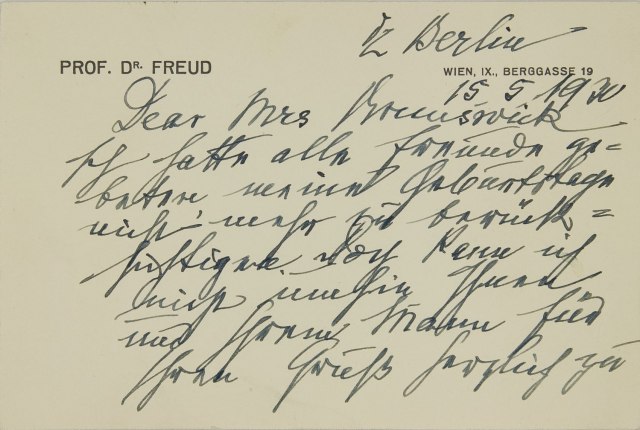 z Berlin
PROF. DR. FREUD
WIEN, IX., BERGGASSE 19
15 5 1930
Dear Mrs Brunswick
Ich hatte alle Freunde ge=
beten meine Geburtstage
nicht mehr zu berück=
sichtigen. Doch kann ich
nicht umhin Ihnen
und Ihrem Mann für
Ihren Gruß herzlich zu